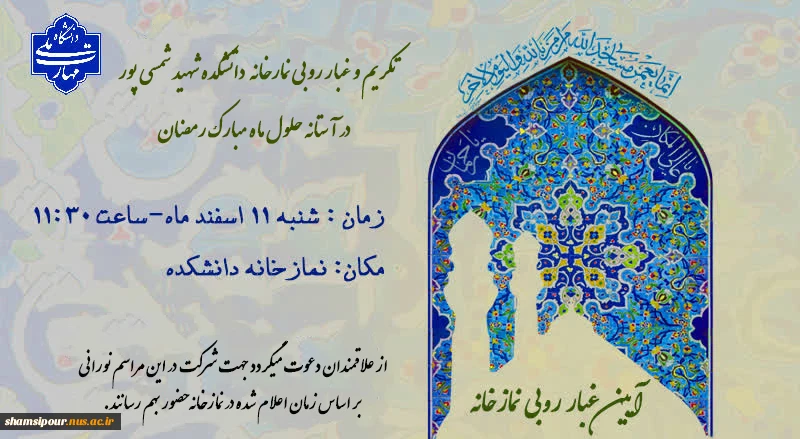 دانشگاه
ملی
مهارت
تکریم و غبار روبی نمازخانه دانشکده شهید شمسی پور
در آستانه حلول ماه مبارک رمضان
زمان : شنبه ۱۱ اسفند ماه-ساعت ۱۱:۳۰
مکان: نمازخانه دانشکده
از علاقمندان دعوت میگردد جهت شرکت در این مراسم نورانی
بر اساس زمان اعلام شده در نمازخانه حضور بهم رسانند.
انما یعمر مساجد الله من آمن بالله والیوم الآخر
آیین غبار روبی نمازخانه
shamsipour.nus.ac.ir